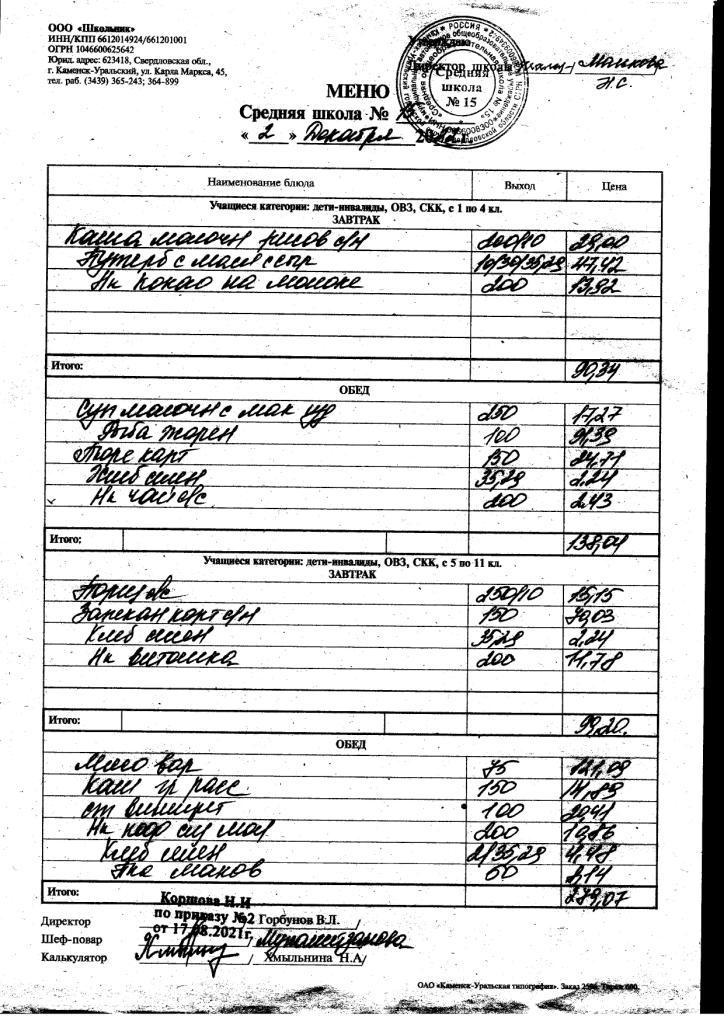 ООО «Школьник»
ИНН/КПП 6612014924/661201001
ОГРН 1046600625642
Юрид. адрес: 623418, Свердловская обл.,
г. Каменск-Уральский, ул. Карла Маркса, 45,
тел. раб. (3439) 365-243; 364-899
Утверждаю
Директор школы
Н.С.
РОССИЯ
Средняя
школа
№ 15
МЕНЮ
Средняя школа № 15
« 2 » Декабря
Наименование блюда Выход Цена
Учащиеся категории: дети-инвалиды, ОВЗ, СКК, с 1 по 4 кл.
ЗАВТРАК
Каша молочн рисов с/м 200/10 29,00
Бутерб с масл сыр 10/30/35,29 47,42
Нк Какао на молоке 200 13,92
Итого: 90,34
ОБЕД
Суп молочн с мак изд 250 17,27
Рыба жарен 100 91,39
Пюре карт 150 24,71
Хлеб пшен 35,29 2,24
Нк чай с/с 200 2,43
Итого: 138,04
Учащиеся категории: дети-инвалиды, ОВЗ, СКК, с 5 по 11 кл.
ЗАВТРАК
250/10 15,15
Запекан карт с/м 150 70,03
Хлеб пшен 35,29 2,24
Нк витошка 200 11,78
Итого: 99,20
ОБЕД
Мясо вар 75 121,09
Каш гр расс 150 14,89
от винигрет 100 20,41
200 10,86
Хлеб пшен 2/35,29 4,48
60
Итого: 279,07
Коршова Н.И
по приказу №2
от 17.08.2021г.
Директор / Горбунов В.Л. /
Шеф-повар
Калькулятор / Хмыльнина Н.А/
ОАО «Каменск-Уральская типография». Заказ